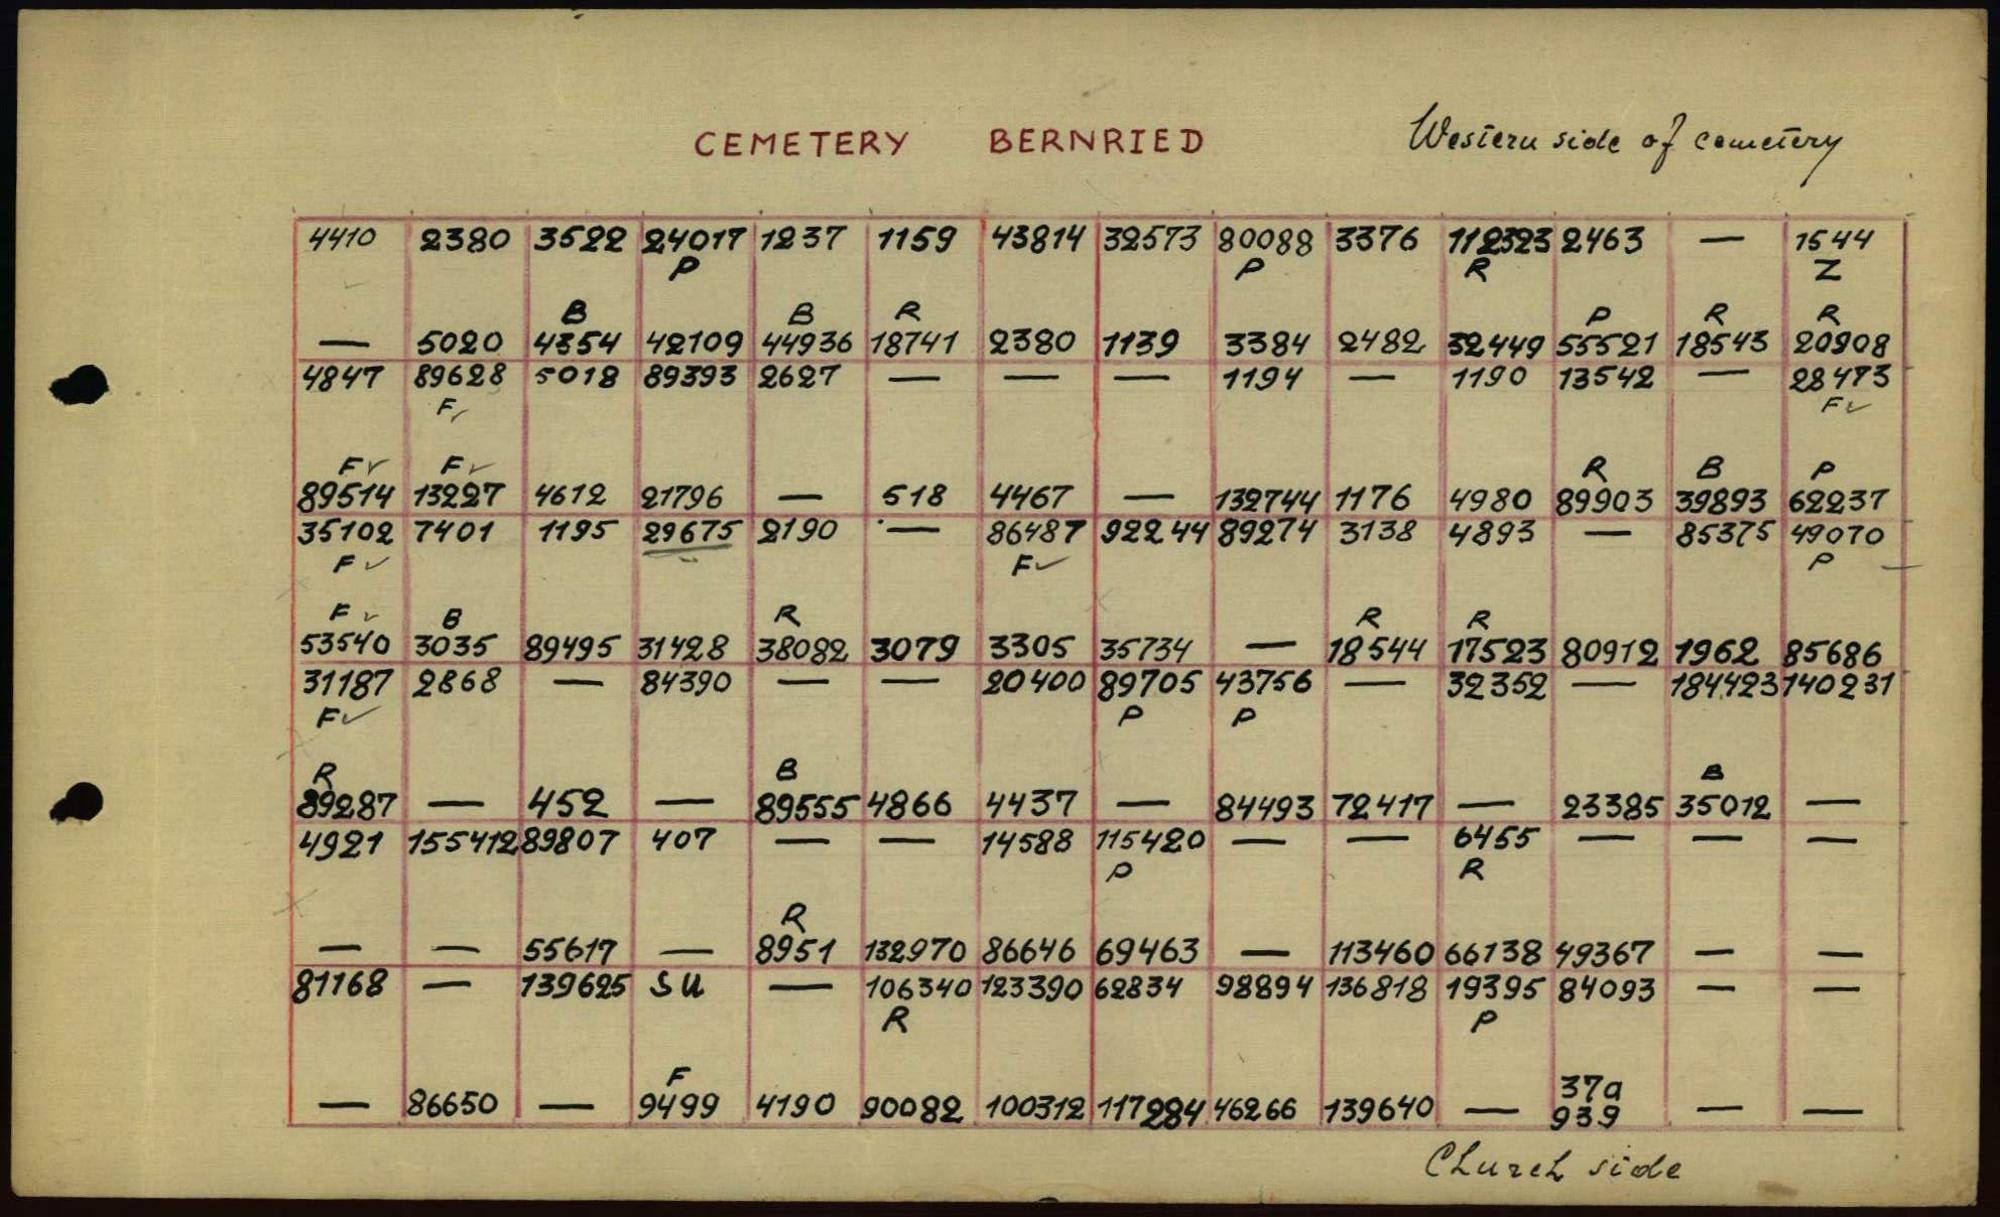 CEMETERY BERNRIED Western side of cemetery
4410 2380 3522 24017 1237 1159 43814 32573 80088 3376 112323 2463 — 1544
P P R Z
B B R P R R
— 5020 4354 42109 44936 18741 2380 1139 3384 2482 32449 55521 18543 20908
4847 89628 5018 89393 2627 — — — 1194 — 1190 13542 — 28473
F✓ F✓
F✓ F✓ R B P
89514 13227 4612 21796 — 518 4467 — 132744 1176 4980 89903 39893 62237
35102 7401 1195 29675 2190 — 86487 92244 89274 3138 4893 — 85375 49070
F✓ F✓ P
F✓ B R R R
53540 3035 89495 31428 38082 3079 3305 35734 — 18544 17523 80912 1962 85686
31187 2868 — 84390 — — 20400 89705 43756 — 32352 — 184423 140231
F✓ P P
R B B
89287 — 452 — 89555 4866 4437 — 84493 72417 — 23385 35012 —
4921 155412 89807 407 — — 14588 115420 — — 6455 — — —
P R
R
— — 55617 — 8951 132970 86646 69463 — 113460 66138 49367 — —
81168 — 139625 SU — 106340 123390 62834 98894 136818 19395 84093 — —
R P
F 37a
— 86650 — 9499 4190 90082 100312 117284 46266 139640 — 939 — —
Church side